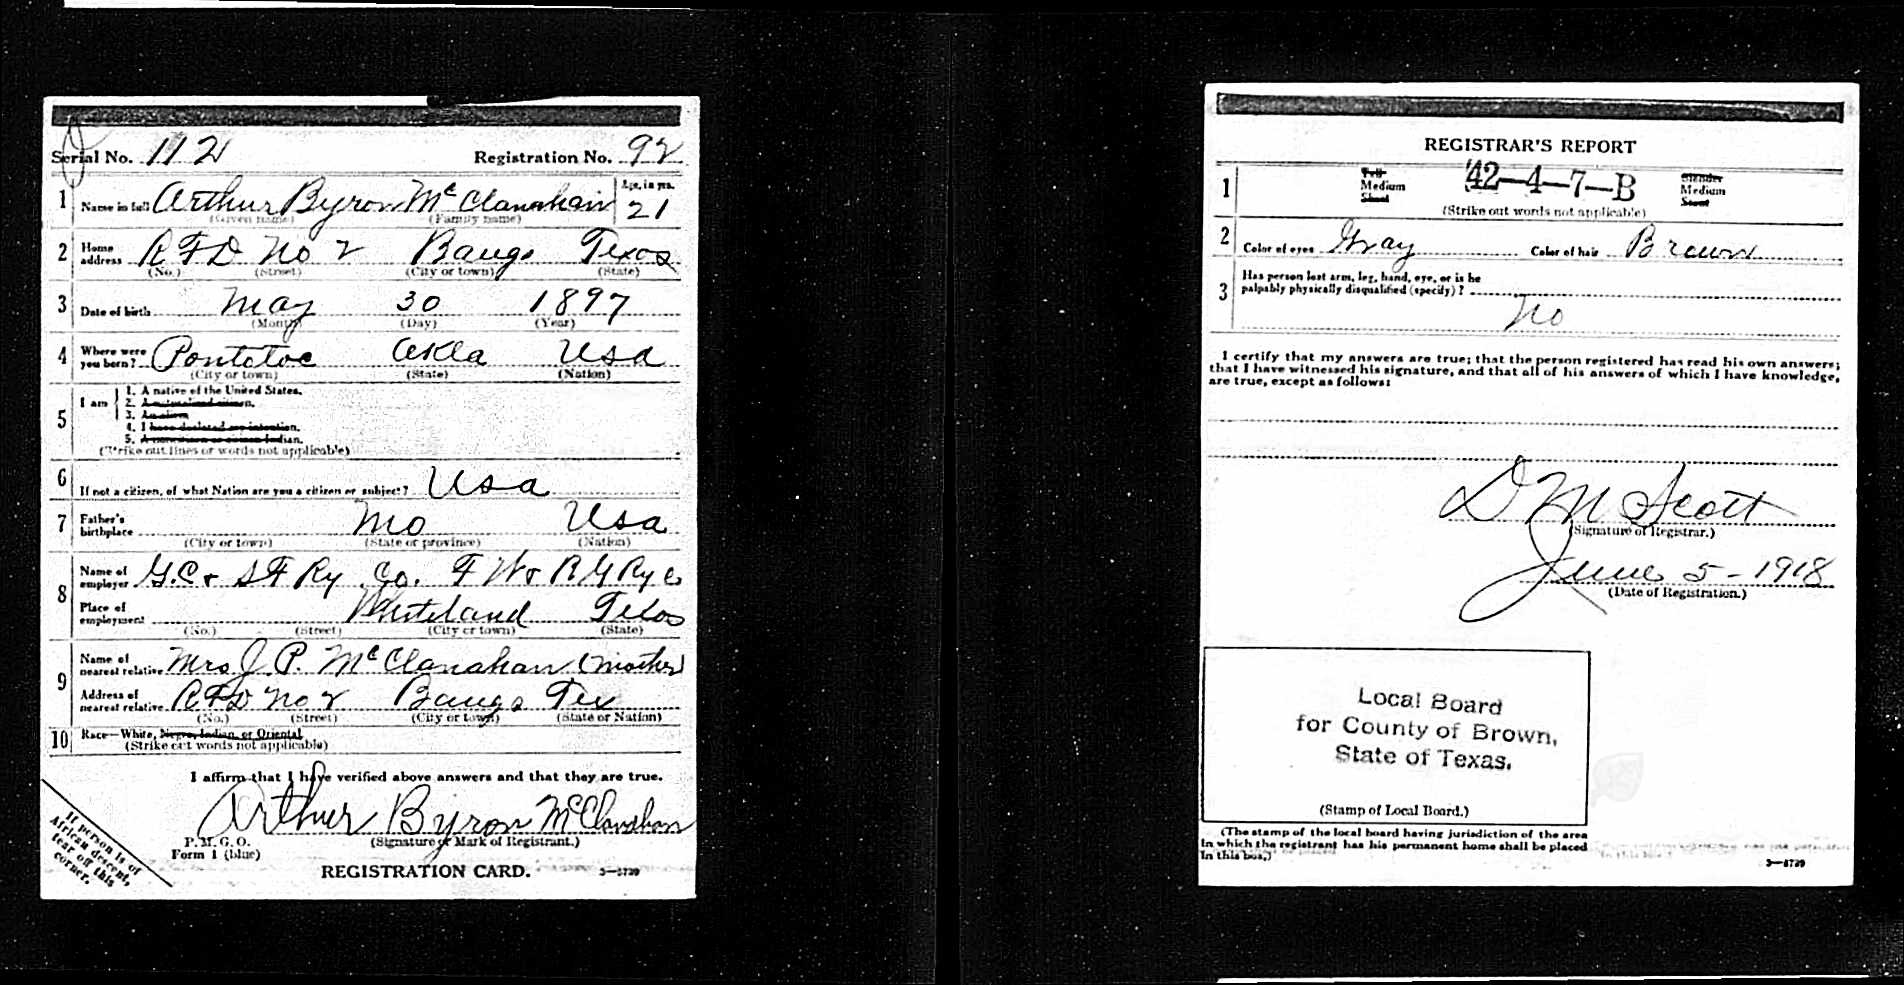 Serial No. 112 Registration No. 92
1 Name in full Arthur Byron McClanahan Age, in yrs. 21
(Given name) (Family name)
2 Home address R F D No 2 Bangs Texas
(No.) (Street) (City or town) (State)
3 Date of birth May 30 1897
(Month) (Day) (Year)
4 Where were you born? Pontotoc Okla Usa
(City or town) (State) (Nation)
5 I am
1. A native of the United States.
2. A naturalized citizen.
3. An alien
4. I have declared my intention.
5. A noncitizen or citizen Indian.
(Strike out lines or words not applicable)
6 If not a citizen, of what Nation are you a citizen or subject? Usa
7 Father's birthplace Mo Usa
(City or town) (State or province) (Nation)
8 Name of employer G.C + S F Ry Co. F W + R G Ry C
Place of employment Whiteland Texas
(No.) (Street) (City or town) (State)
9 Name of nearest relative Mrs J. P. McClanahan (Mother)
Address of nearest relative R F D No 2 Bangs Tex
(No.) (Street) (City or town) (State or Nation)
10 Race—White, Negro, Indian, or Oriental
(Strike out words not applicable)
I affirm that I have verified above answers and that they are true.
Arthur Byron McClanahan
P. M. G. O.
Form 1 (blue)
(Signature or Mark of Registrant.)
REGISTRATION CARD. 3—5739
If person is of
African descent,
tear off this
corner.
REGISTRAR'S REPORT
1 Tall Medium Short 42—4—7—B Slender Medium Stout
(Strike out words not applicable)
2 Color of eyes Gray Color of hair Brown
3 Has person lost arm, leg, hand, eye, or is he
palpably physically disqualified (specify)?
No
I certify that my answers are true; that the person registered has read his own answers;
that I have witnessed his signature, and that all of his answers of which I have knowledge,
are true, except as follows:
D M Scott
(Signature of Registrar.)
June 5 - 1918
(Date of Registration.)
Local Board
for County of Brown,
State of Texas.
(Stamp of Local Board.)
(The stamp of the local board having jurisdiction of the area
in which the registrant has his permanent home shall be placed
in this box.)
3—5739